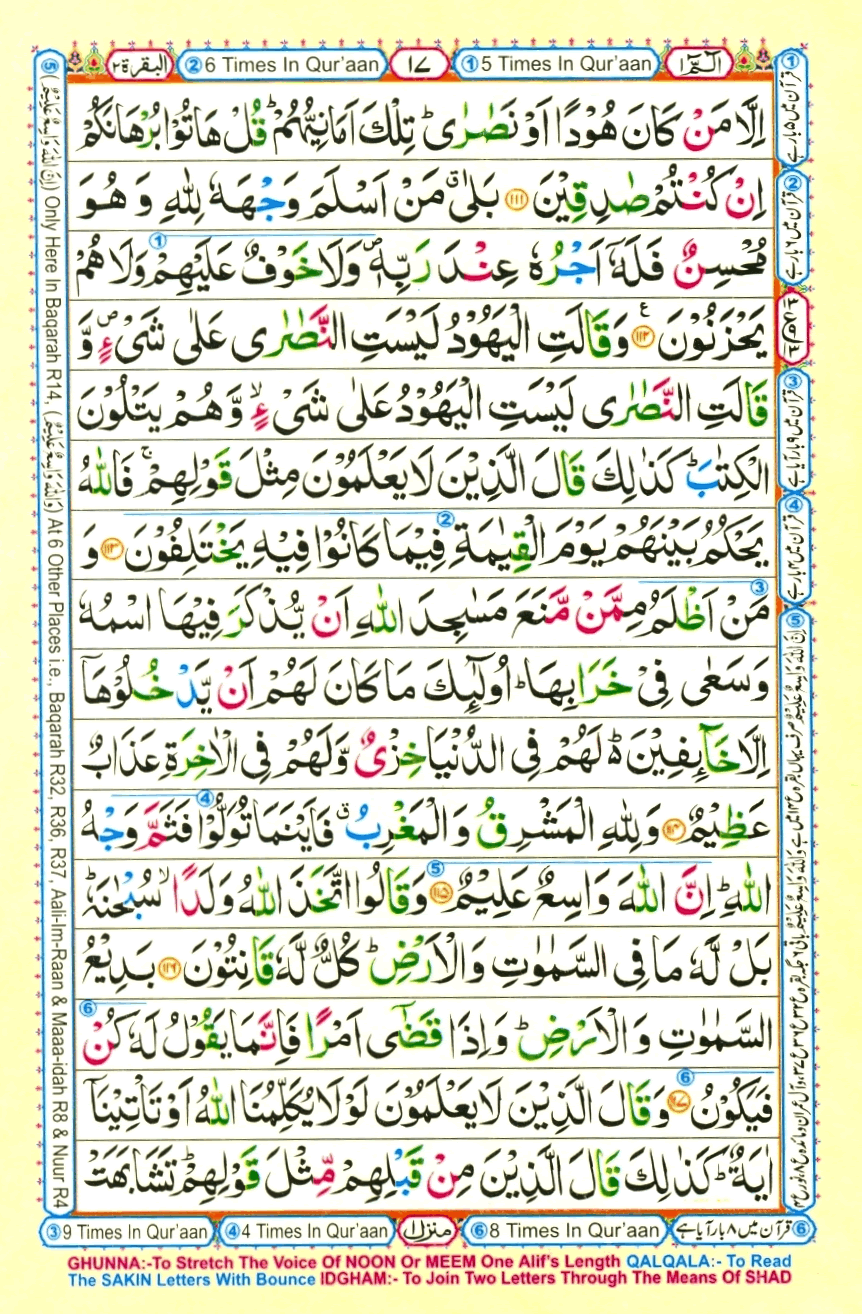 البقرة ٢
② 6 Times In Qur'aan
١٧
① 5 Times In Qur'aan
الٓمّٓ ١
اِلَّا مَنْ كَانَ هُوْدًا اَوْ نَصٰرٰى ؕ تِلْكَ اَمَانِيُّهُمْ ؕ قُلْ هَاتُوْا بُرْهَانَكُمْ
اِنْ كُنْتُمْ صٰدِقِيْنَ ﴿۱۱۱﴾ بَلٰى ۗ مَنْ اَسْلَمَ وَجْهَهٗ لِلّٰهِ وَ هُوَ
مُحْسِنٌ فَلَهٗۤ اَجْرُهٗ عِنْدَ رَبِّهٖ ۪ وَلَا خَوْفٌ عَلَيْهِمْ وَلَا هُمْ
يَحْزَنُوْنَ ﴿۱۱۲﴾ ع وَقَالَتِ الْيَهُوْدُ لَيْسَتِ النَّصٰرٰى عَلٰى شَىْءٍ ۪ وَّ
قَالَتِ النَّصٰرٰى لَيْسَتِ الْيَهُوْدُ عَلٰى شَىْءٍ ۙ وَّهُمْ يَتْلُوْنَ
الْكِتٰبَ ؕ كَذٰلِكَ قَالَ الَّذِيْنَ لَا يَعْلَمُوْنَ مِثْلَ قَوْلِهِمْ ۚ فَاللّٰهُ
يَحْكُمُ بَيْنَهُمْ يَوْمَ الْقِيٰمَةِ فِيْمَا كَانُوْا فِيْهِ يَخْتَلِفُوْنَ ﴿۱۱۳﴾ وَ
مَنْ اَظْلَمُ مِمَّنْ مَّنَعَ مَسٰجِدَ اللّٰهِ اَنْ يُّذْكَرَ فِيْهَا اسْمُهٗ
وَسَعٰى فِىْ خَرَابِهَا ؕ اُولٰٓئِكَ مَا كَانَ لَهُمْ اَنْ يَّدْخُلُوْهَاۤ
اِلَّا خَآئِفِيْنَ ؕ۬ لَهُمْ فِى الدُّنْيَا خِزْىٌ وَّلَهُمْ فِى الْاٰخِرَةِ عَذَابٌ
عَظِيْمٌ ﴿۱۱۴﴾ وَلِلّٰهِ الْمَشْرِقُ وَالْمَغْرِبُ ۗ فَاَيْنَمَا تُوَلُّوْا فَثَمَّ وَجْهُ
اللّٰهِ ؕ اِنَّ اللّٰهَ وَاسِعٌ عَلِيْمٌ ﴿۱۱۵﴾ وَقَالُوا اتَّخَذَ اللّٰهُ وَلَدًا ۙ سُبْحٰنَهٗ ؕ
بَلْ لَّهٗ مَا فِى السَّمٰوٰتِ وَالْاَرْضِ ؕ كُلٌّ لَّهٗ قَانِتُوْنَ ﴿۱۱۶﴾ بَدِيْعُ
السَّمٰوٰتِ وَالْاَرْضِ ؕ وَاِذَا قَضٰٓى اَمْرًا فَاِنَّمَا يَقُوْلُ لَهٗ كُنْ
فَيَكُوْنُ ﴿۱۱۷﴾ وَقَالَ الَّذِيْنَ لَا يَعْلَمُوْنَ لَوْلَا يُكَلِّمُنَا اللّٰهُ اَوْ تَاْتِيْنَاۤ
اٰيَةٌ ؕ كَذٰلِكَ قَالَ الَّذِيْنَ مِنْ قَبْلِهِمْ مِّثْلَ قَوْلِهِمْ ؕ تَشَابَهَتْ
① قرآن میں ۵ بار ہے
② قرآن میں ۶ بار ہے
③ قرآن میں ۹ بار آیا ہے
④ قرآن میں ۴ بار ہے
⑤ (اِنَّ اللّٰهَ وَاسِعٌ عَلِيْمٌ) Only Here In Baqarah R14, (وَاللّٰهُ وَاسِعٌ عَلِيْمٌ) At 6 Other Places i.e., Baqarah R32, R36, R37, Aali-Im-Raan & Maaa-idah R8 & Nuur R4
③ 9 Times In Qur'aan
④ 4 Times In Qur'aan
منزل ١
⑥ 8 Times In Qur'aan
⑥ قرآن میں ۸ بار آیا ہے
GHUNNA:-To Stretch The Voice Of NOON Or MEEM One Alif's Length QALQALA:- To Read
The SAKIN Letters With Bounce IDGHAM:- To Join Two Letters Through The Means Of SHAD